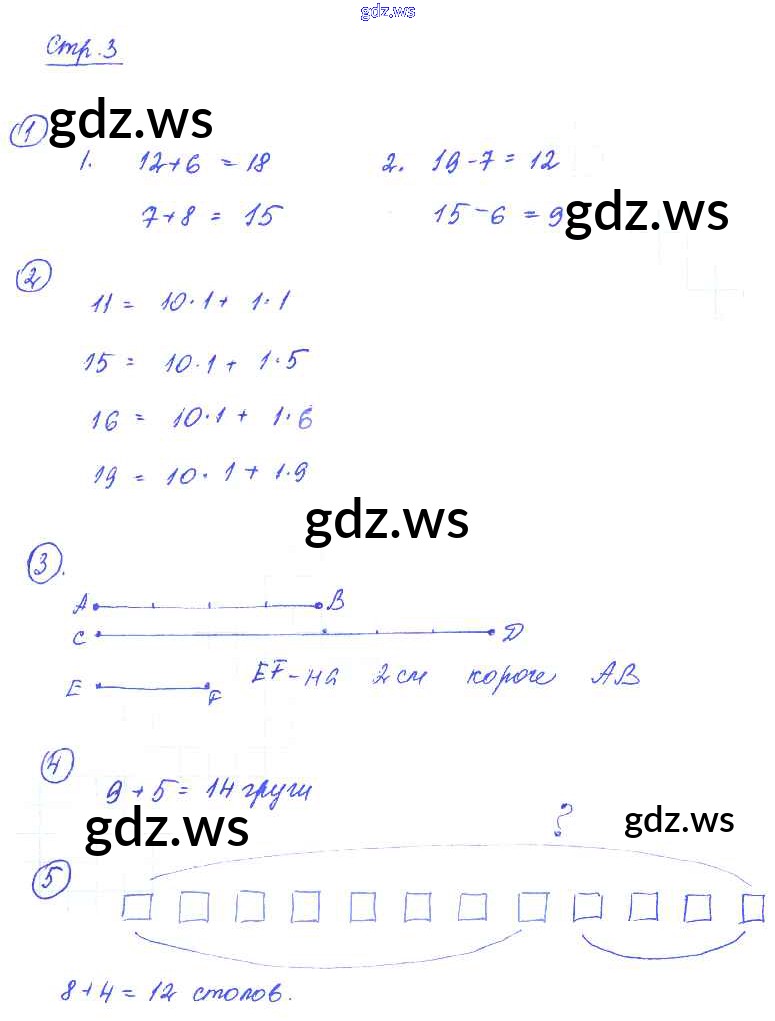 gdz.ws
Стр. 3
1 gdz.ws
1. 12+6 = 18 2. 19-7 = 12
7+8 = 15 15-6 = 9 gdz.ws
2
11 = 10·1 + 1·1
15 = 10·1 + 1·5
16 = 10·1 + 1·6
19 = 10·1 + 1·9
gdz.ws
3.
A B
C D
E F EF-на 2 см короче AB
4
9+5 = 14 груш
gdz.ws ? gdz.ws
5
8+4 = 12 столов.